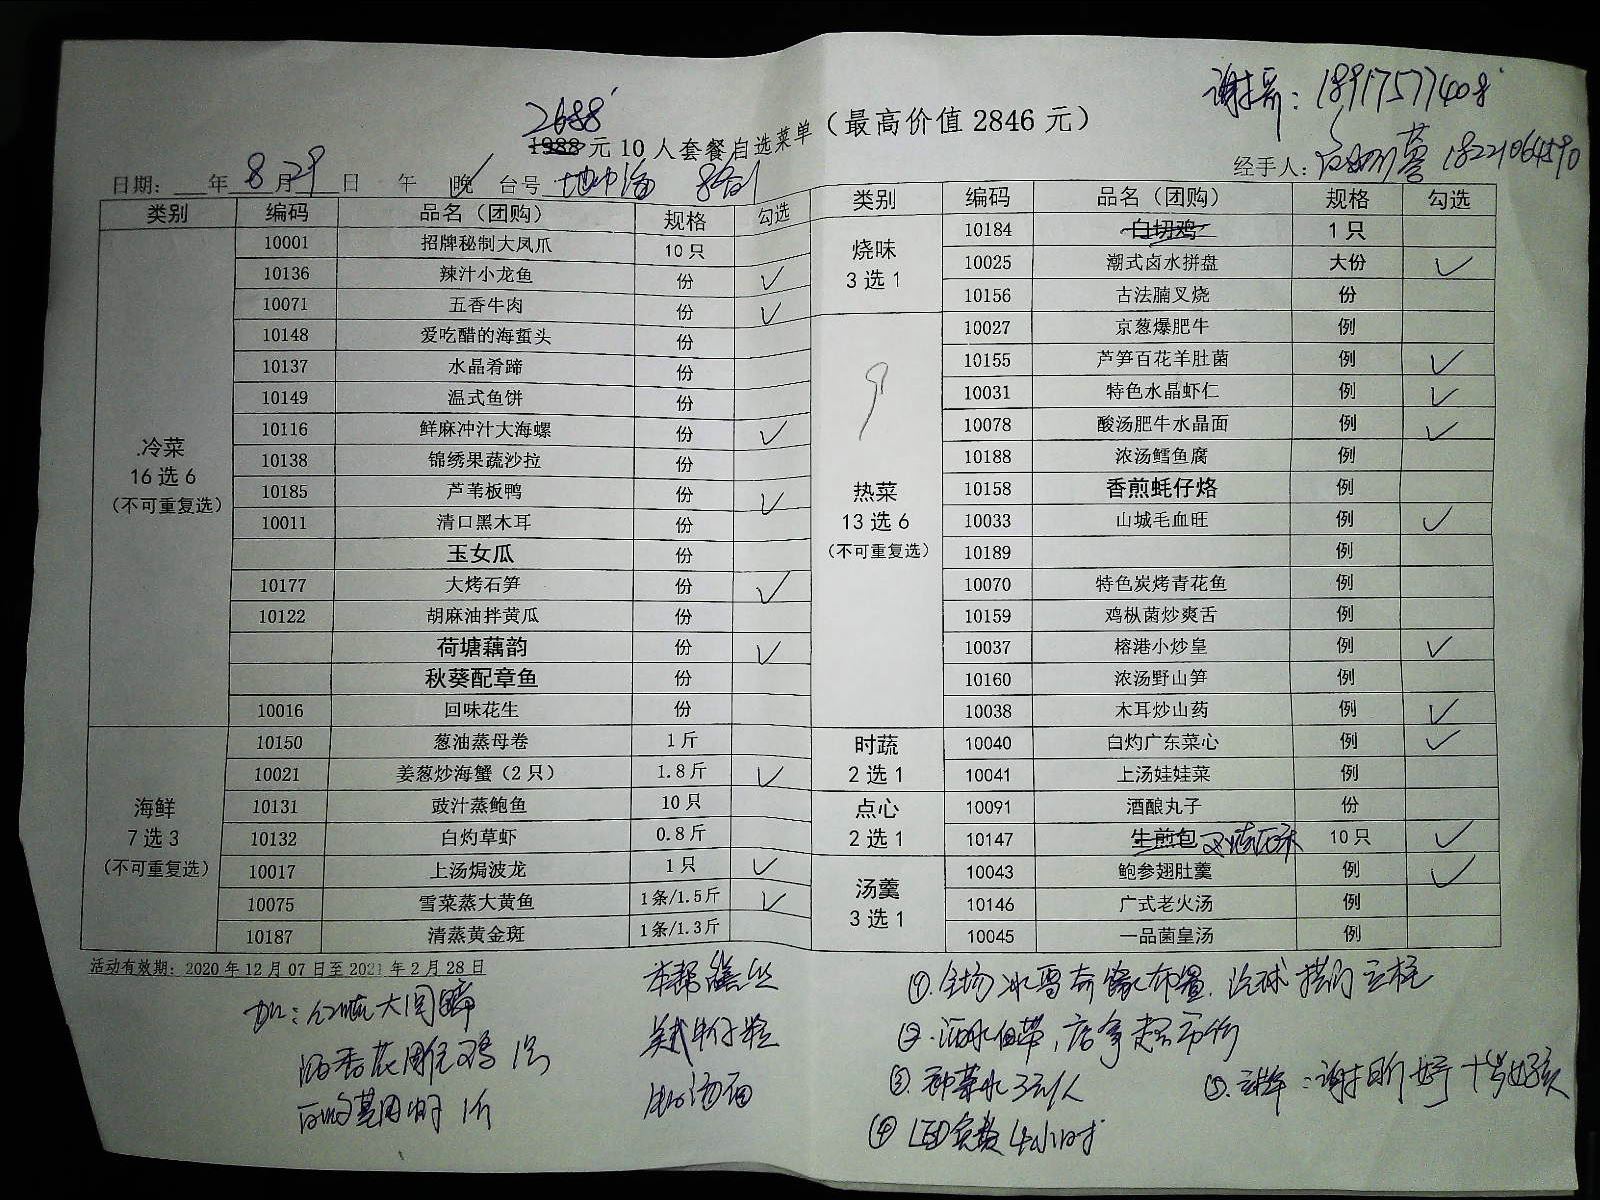 谢 : 18917577408
2688
1988元10人套餐自选菜单（最高价值2846元）
经手人: 18221064590
日期: 年8月29日 午 晚✓ 台号 地中海 8台
类别 编码 品名（团购） 规格 勾选
冷菜
16选6
（不可重复选）
10001 招牌秘制大凤爪 10只
10136 辣汁小龙鱼 份 ✓
10071 五香牛肉 份 ✓
10148 爱吃醋的海蜇头 份
10137 水晶肴蹄 份
10149 温式鱼饼 份
10116 鲜麻冲汁大海螺 份 ✓
10138 锦绣果蔬沙拉 份
10185 芦苇板鸭 份 ✓
10011 清口黑木耳 份
玉女瓜 份
10177 大烤石笋 份 ✓
10122 胡麻油拌黄瓜 份
荷塘藕韵 份 ✓
秋葵配章鱼 份
10016 回味花生 份
海鲜
7选3
（不可重复选）
10150 葱油蒸母卷 1斤
10021 姜葱炒海蟹（2只） 1.8斤 ✓
10131 豉汁蒸鲍鱼 10只
10132 白灼草虾 0.8斤
10017 上汤焗波龙 1只 ✓
10075 雪菜蒸大黄鱼 1条/1.5斤 ✓
10187 清蒸黄金斑 1条/1.3斤
类别 编码 品名（团购） 规格 勾选
烧味
3选1
10184 白切鸡 1只
10025 潮式卤水拼盘 大份 ✓
10156 古法腩叉烧 份
热菜
13选6
（不可重复选）
10027 京葱爆肥牛 例
10155 芦笋百花羊肚菌 例 ✓
10031 特色水晶虾仁 例 ✓
10078 酸汤肥牛水晶面 例 ✓
10188 浓汤鳕鱼腐 例
10158 香煎蚝仔烙 例
10033 山城毛血旺 例 ✓
10189 例
10070 特色炭烤青花鱼 例
10159 鸡枞菌炒爽舌 例
10037 榕港小炒皇 例 ✓
10160 浓汤野山笋 例
10038 木耳炒山药 例 ✓
时蔬
2选1
10040 白灼广东菜心 例 ✓
10041 上汤娃娃菜 例
点心
2选1
10091 酒酿丸子 份
10147 生煎包 10只 ✓
汤羹
3选1
10043 鲍参翅肚羹 例 ✓
10146 广式老火汤 例
10045 一品菌皇汤 例
活动有效期: 2020年12月07日至2021年2月28日
加: 红烧大圆蹄
酒香花雕鸡 1只
1斤
本帮鳝丝
美式牛仔粒
汤面
①.全场冰雪奇缘布置.汽球拱门立柱
②.酒水自带,店拿超市价
③ 茶水3元/人
④ LED免费4小时
⑤. : 谢